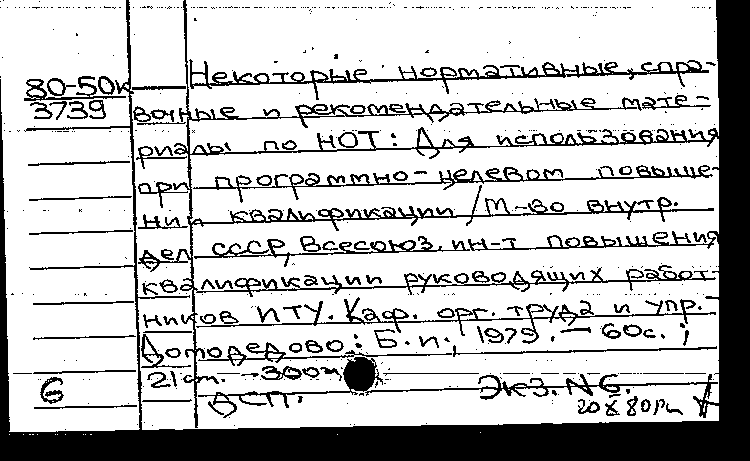 80-50к
3739
Некоторые нормативные, спра-
вочные и рекомендательные мате-
риалы по НОТ: Для использования
при программно-целевом повыше-
нии квалификации / М-во внутр.
дел СССР, Всесоюз. ин-т повышения
квалификации руководящих работ-
ников ИТУ. Каф. орг. труда и упр. -
Домодедово: Б.и., 1979. - 60с.;
21 см. - 300
ДСП. Экз. N6.
6